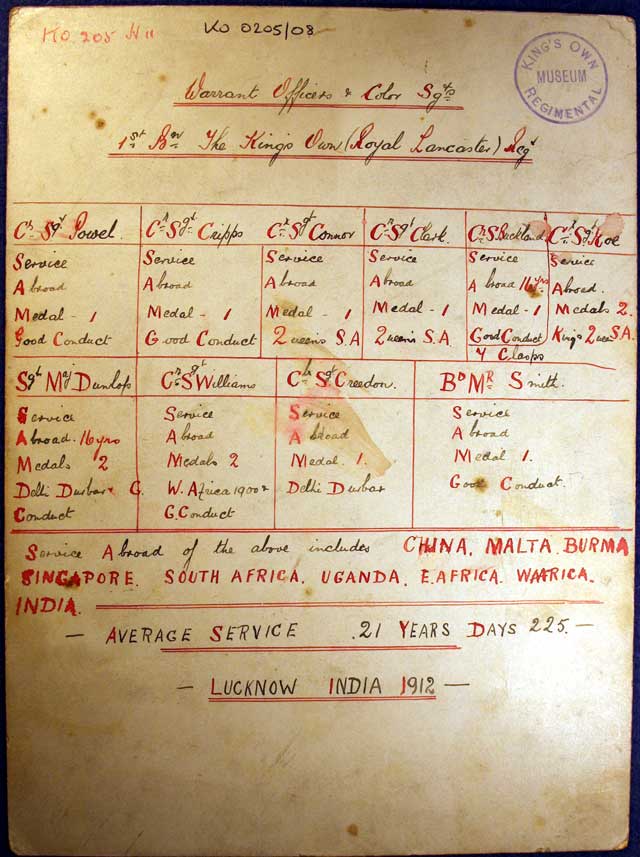 KO. 205 N 11
KO 0205/08
KING'S OWN
MUSEUM
REGIMENTAL
Warrant Officers & Color Sgts
1st Bn The King's Own (Royal Lancaster) Regt
Cr Sgt Powel. Cr Sgt Cripps Cr Sgt Connor Cr Sgt Clark. Cr S Buckland Cr Sgt Roe
Service Service Service Service Service Service
Abroad Abroad Abroad Abroad Abroad 16 yrs Abroad.
Medal - 1 Medal - 1 Medal - 1 Medal - 1 Medal - 1 Medals 2.
Good Conduct Good Conduct Queens S.A Queen's S.A. Good Conduct Kings Queen S.A
7 Clasps
Sgt Maj Dunlop Cr Sgt Williams Cr Sgt Creedon. Bd Mr Smith.
Service Service Service Service
Abroad. 16 yrs Abroad Abroad Abroad
Medals 2 Medals 2 Medal 1. Medal 1.
Delhi Durbar & G. W. Africa 1900 Delhi Durbar Good Conduct.
Conduct G. Conduct
Service Abroad of the above includes CHINA, MALTA, BURMA
SINGAPORE. SOUTH AFRICA. UGANDA. E. AFRICA.
INDIA.
— AVERAGE SERVICE . 21 YEARS DAYS 225. —
— LUCKNOW INDIA 1912 —